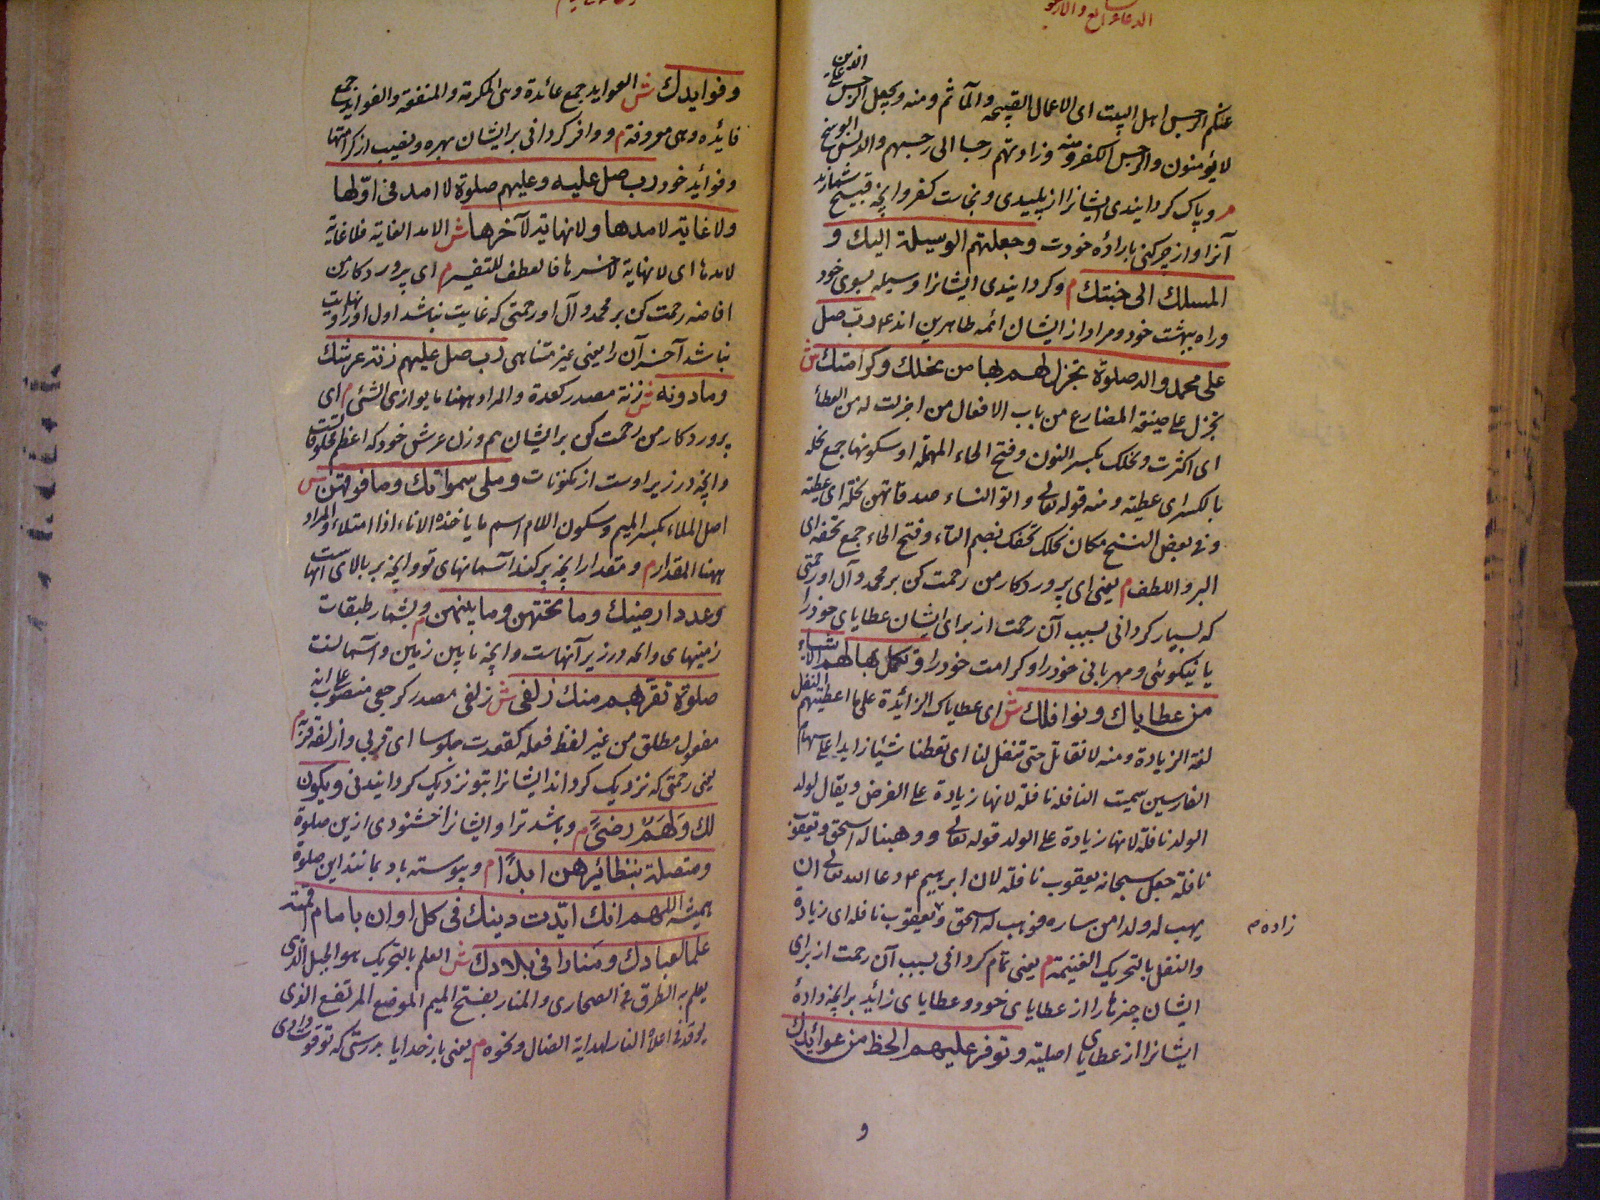 الدعاء الرابع والاربعو
عنكم الرجس اهل البيت اى الاعمال القبيحه والمآثم ومنه ويجعل الرجس على الذين
لا يؤمنون والرجس الكفر ومنه وزادتهم رجسا الى رجسهم والدنس الوسخ
م وپاك كردانيدى ايشانرا از پليدى ونجاست كفر وآنچه قبيح شمارند
آنرا واز چركنى بارادۀ خودت وجعلتهم الوسيلة اليك و
المسلك الى جنتك م وكردانيدى ايشانرا وسيله بسوى خود
وراه بهشت خود ومراد از ايشان ائمه طاهرين اند ع رب صل
على محمد واله صلوة تجزل لهم بها من نحلك وكرامتك ش
تجزل على صيغة المضارع من باب الافعال من اجزلت له من العطاء
اى اكثرت ونحلك بكسر النون وفتح الحاء المهملة او سكونها جمع نحلة
بالكسر اى عطية ومنه قوله تعالى واتوا النساء صدقاتهن نحلة اى عطية
وفى بعض النسخ مكان نحلك تحفك بضم التاء وفتح الحاء جمع تحفه اى
البر واللطف م يعنى اى پروردكار من رحمت كن بر محمد وآل او رحمتى
كه بسيار كردانى بسبب آن رحمت از براى ايشان عطاياى خود را
يا نيكوئى ومهربانى خود را وكرامت خود را وتكمل لهم بها الاشياء
من عطاياك ونوافلك ش اى عطاياك الزائدة على ما اعطيتهم النفل
لغة الزيادة ومنه لا نقاتل حتى تنفل لنا اى تعطنا شيئا زايدا على سهام
الفارسين سميت النافلة نافلة لانها زيادة على الفرض ويقال لولد
الولد نافلة لانها زيادة على الولد قوله تعالى ووهبنا له اسحق ويعقوب
نافلة جعل سبحانه يعقوب نافلة لان ابرهيم ع دعا الله تعالى ان
يهب له ولدا من ساره فوهب له اسحق ويعقوب نافله اى زيادة
زاده م
والنفل بالتحريك الغنيمة م يعنى تمام كردانى بسبب آن رحمت از براى
ايشان چيزها را از عطاياى خود وعطاياى زائد بر آنچه دادۀ
ايشانرا از عطاياى اصليه وتوفر عليهم الحظ من عوائدك
و
وفوايدك ش العوايد جمع عائدة وهى المكرمة والمنفعة والفوايد جمع
فائده وهى معروفة م ووافر كردانى بر ايشان بهره ونصيب از كرامتها
وفوائد خود رب صل عليه وعليهم صلوة لا امد فى اولها
ولا غاية لامدها ولا نهاية لآخرها ش الامد الغاية فلا غاية
لامدها اى لا نهاية لآخرها فالعطف للتفسير م اى پروردكار من
افاضه رحمت كن بر محمد وآل او رحمتى كه غايت نباشد اول او را ونهايت
نباشد آخر آن را يعنى غير متناهى رب صل عليهم زنة عرشك
وما دونه ش زنة مصدر كعدة والمراد ههنا ما يوازى الشئ م اى
پروردكار من رحمت كن بر ايشان هم وزن عرش خود كه اعظم مخلوقاتست
وآنچه در زير اوست از مكونات وملئ سمواتك وما فوقهن ش
اصل الملاء بكسر الميم وسكون اللام اسم ما ياخذه الاناء اذا امتلاء والمراد
ههنا المقدار م ومقدار آنچه پر كند آسمانهاى تو وآنچه بر بالاى آنهاست
وعدد ارضيك وما تحتهن وما بينهن م وبشمار طبقات
زمينهاى وآنچه در زير آنهاست وآنچه مابين زمين وآسمانست
صلوة تقربهم منك زلفى ش زلفى مصدر كرجعى منصوب على انه
مفعول مطلق من غير لفظ فعله كقعدت جلوسا اى قربى وازلفه قربه م
يعنى رحمتى كه نزديك كرداند ايشانرا بتو نزديك كردانيدنى ويكون
لك ولهم رضى م وباشد ترا وايشانرا خشنودى ازين صلوة
ومتصلة بنظائرهن ابدا م وپيوسته باد بمانند اين صلوة
هميشه اللهم انك ايدت دينك فى كل اوان بامام اقمته
علما لعبادك ومنارا فى بلادك ش العلم بالتحريك هو الجبل الذى
يعلم به الطرق فى الصحارى والمنار بفتح الميم الموضع المرتفع الذى
يوقد فى اعلاه النار لهداية الضال ونحوه م يعنى بار خدايا بدرستى كه تو قوت دادى